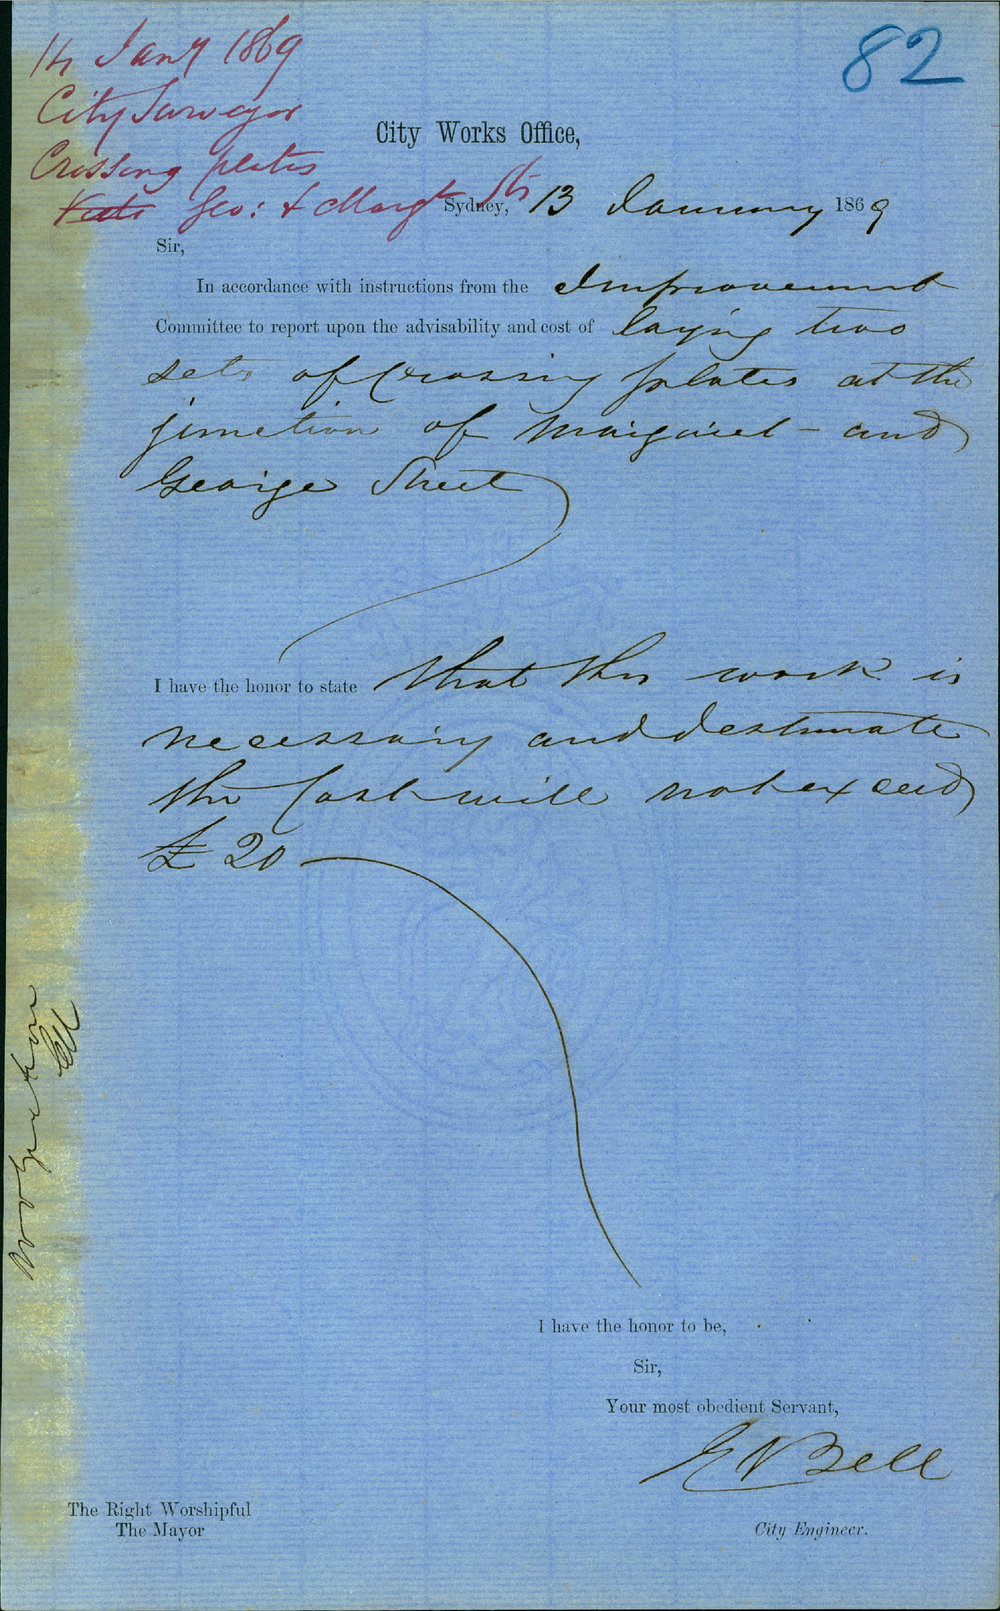 82
14 Jany 1869
City Surveyor
Crossing plates
Geo: & Margt Sts
City Works Office,
Sydney, 13 January 1869
Sir,
In accordance with instructions from the Improvement
Committee to report upon the advisability and cost of laying two
sets of Crossing plates at the
junction of Margaret and
George Street
I have the honor to state that this work is
necessary and I estimate
the Cost will not exceed
£20
I have the honor to be,
Sir,
Your most obedient Servant,
E Bell
The Right Worshipful
The Mayor
City Engineer.